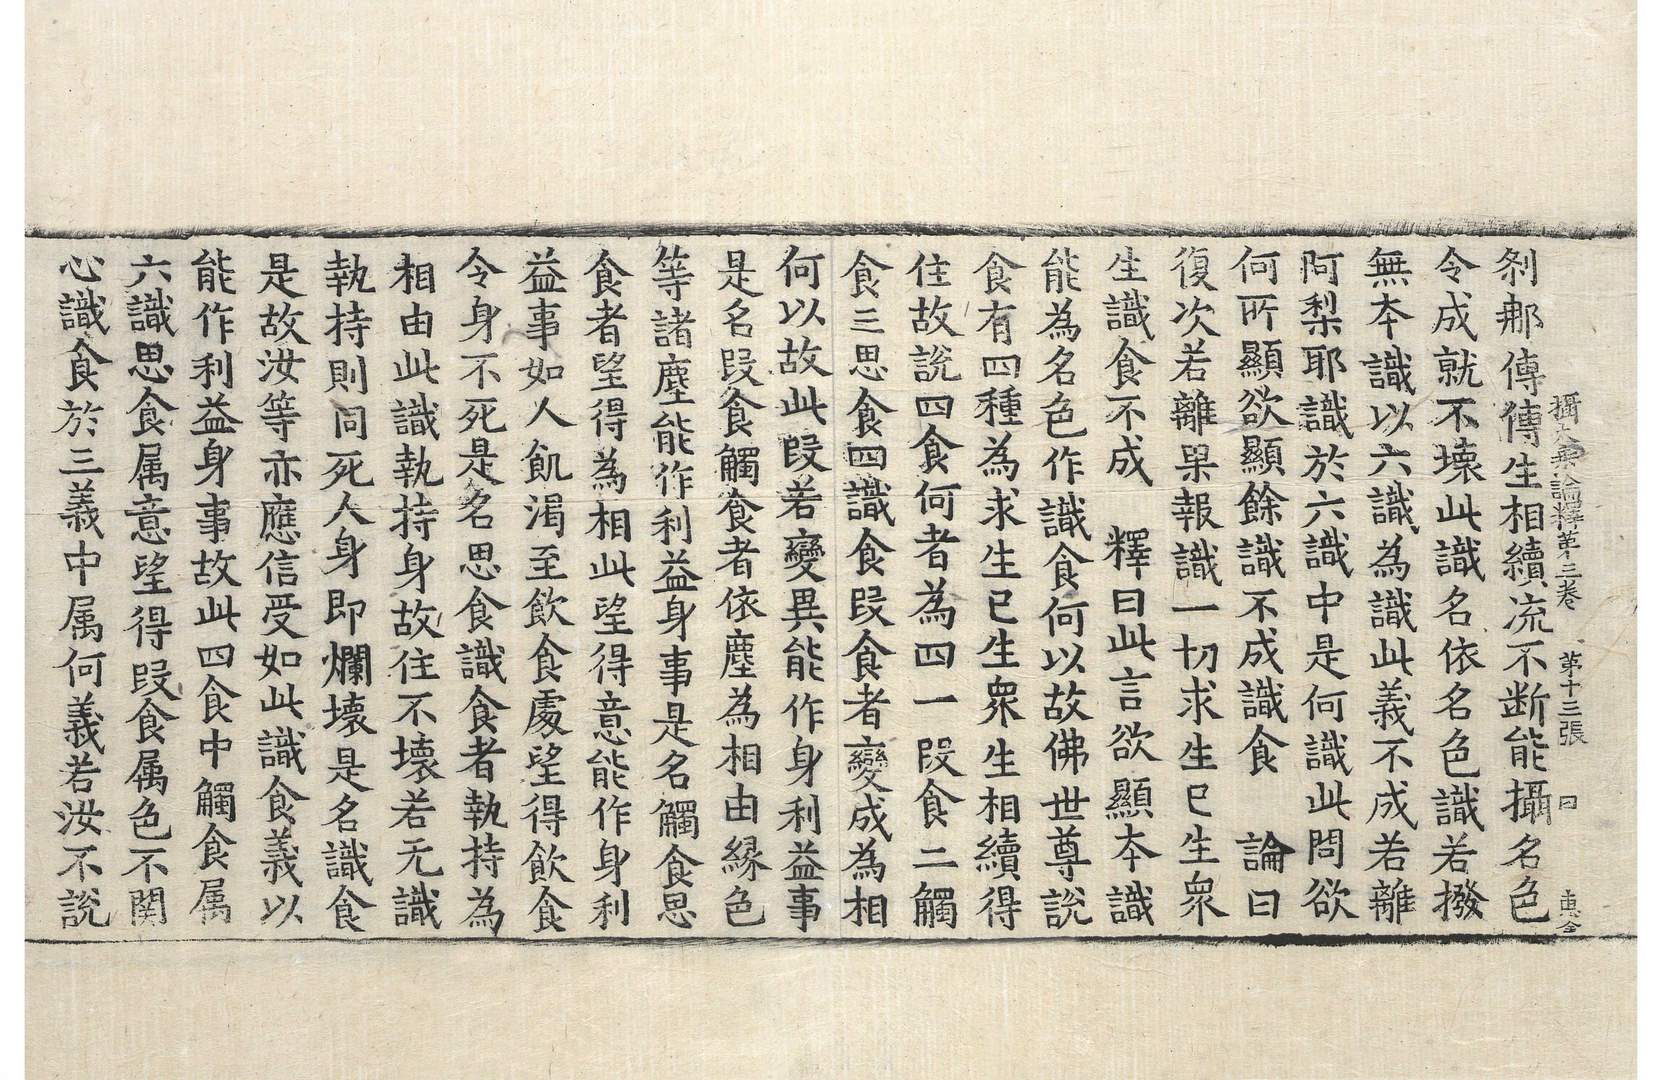 攝大乗論釋第三卷　第十三張　曰　惠全
剎那傳傳生相續流不断能攝名色
令成就不壊此識名依名色識若撥
無夲識以六識為識此義不成若離
阿梨耶識於六識中是何識此問欲
何所顯欲顯餘識不成識食　論曰
復次若離果報識一切求生已生衆
生識食不成　釋曰此言欲顯夲識
能為名色作識食何以故佛世尊説
食有四種為求生已生衆生相續得
住故説四食何者為四一段食二觸
食三思食四識食段食者變成為相
何以故此段若變異能作身利益事
是名段食觸食者依塵為相由緣色
等諸塵能作利益身事是名觸食思
食者望得為相此望得意能作身利
益事如人飢渴至飲食處望得飲食
令身不死是名思食識食者執持為
相由此識執持身故住不壊若无識
執持則同死人身即爛壊是名識食
是故汝等亦應信受如此識食義以
能作利益身事故此四食中觸食属
六識思食属意望得段食属色不関
心識食於三義中属何義若汝不説